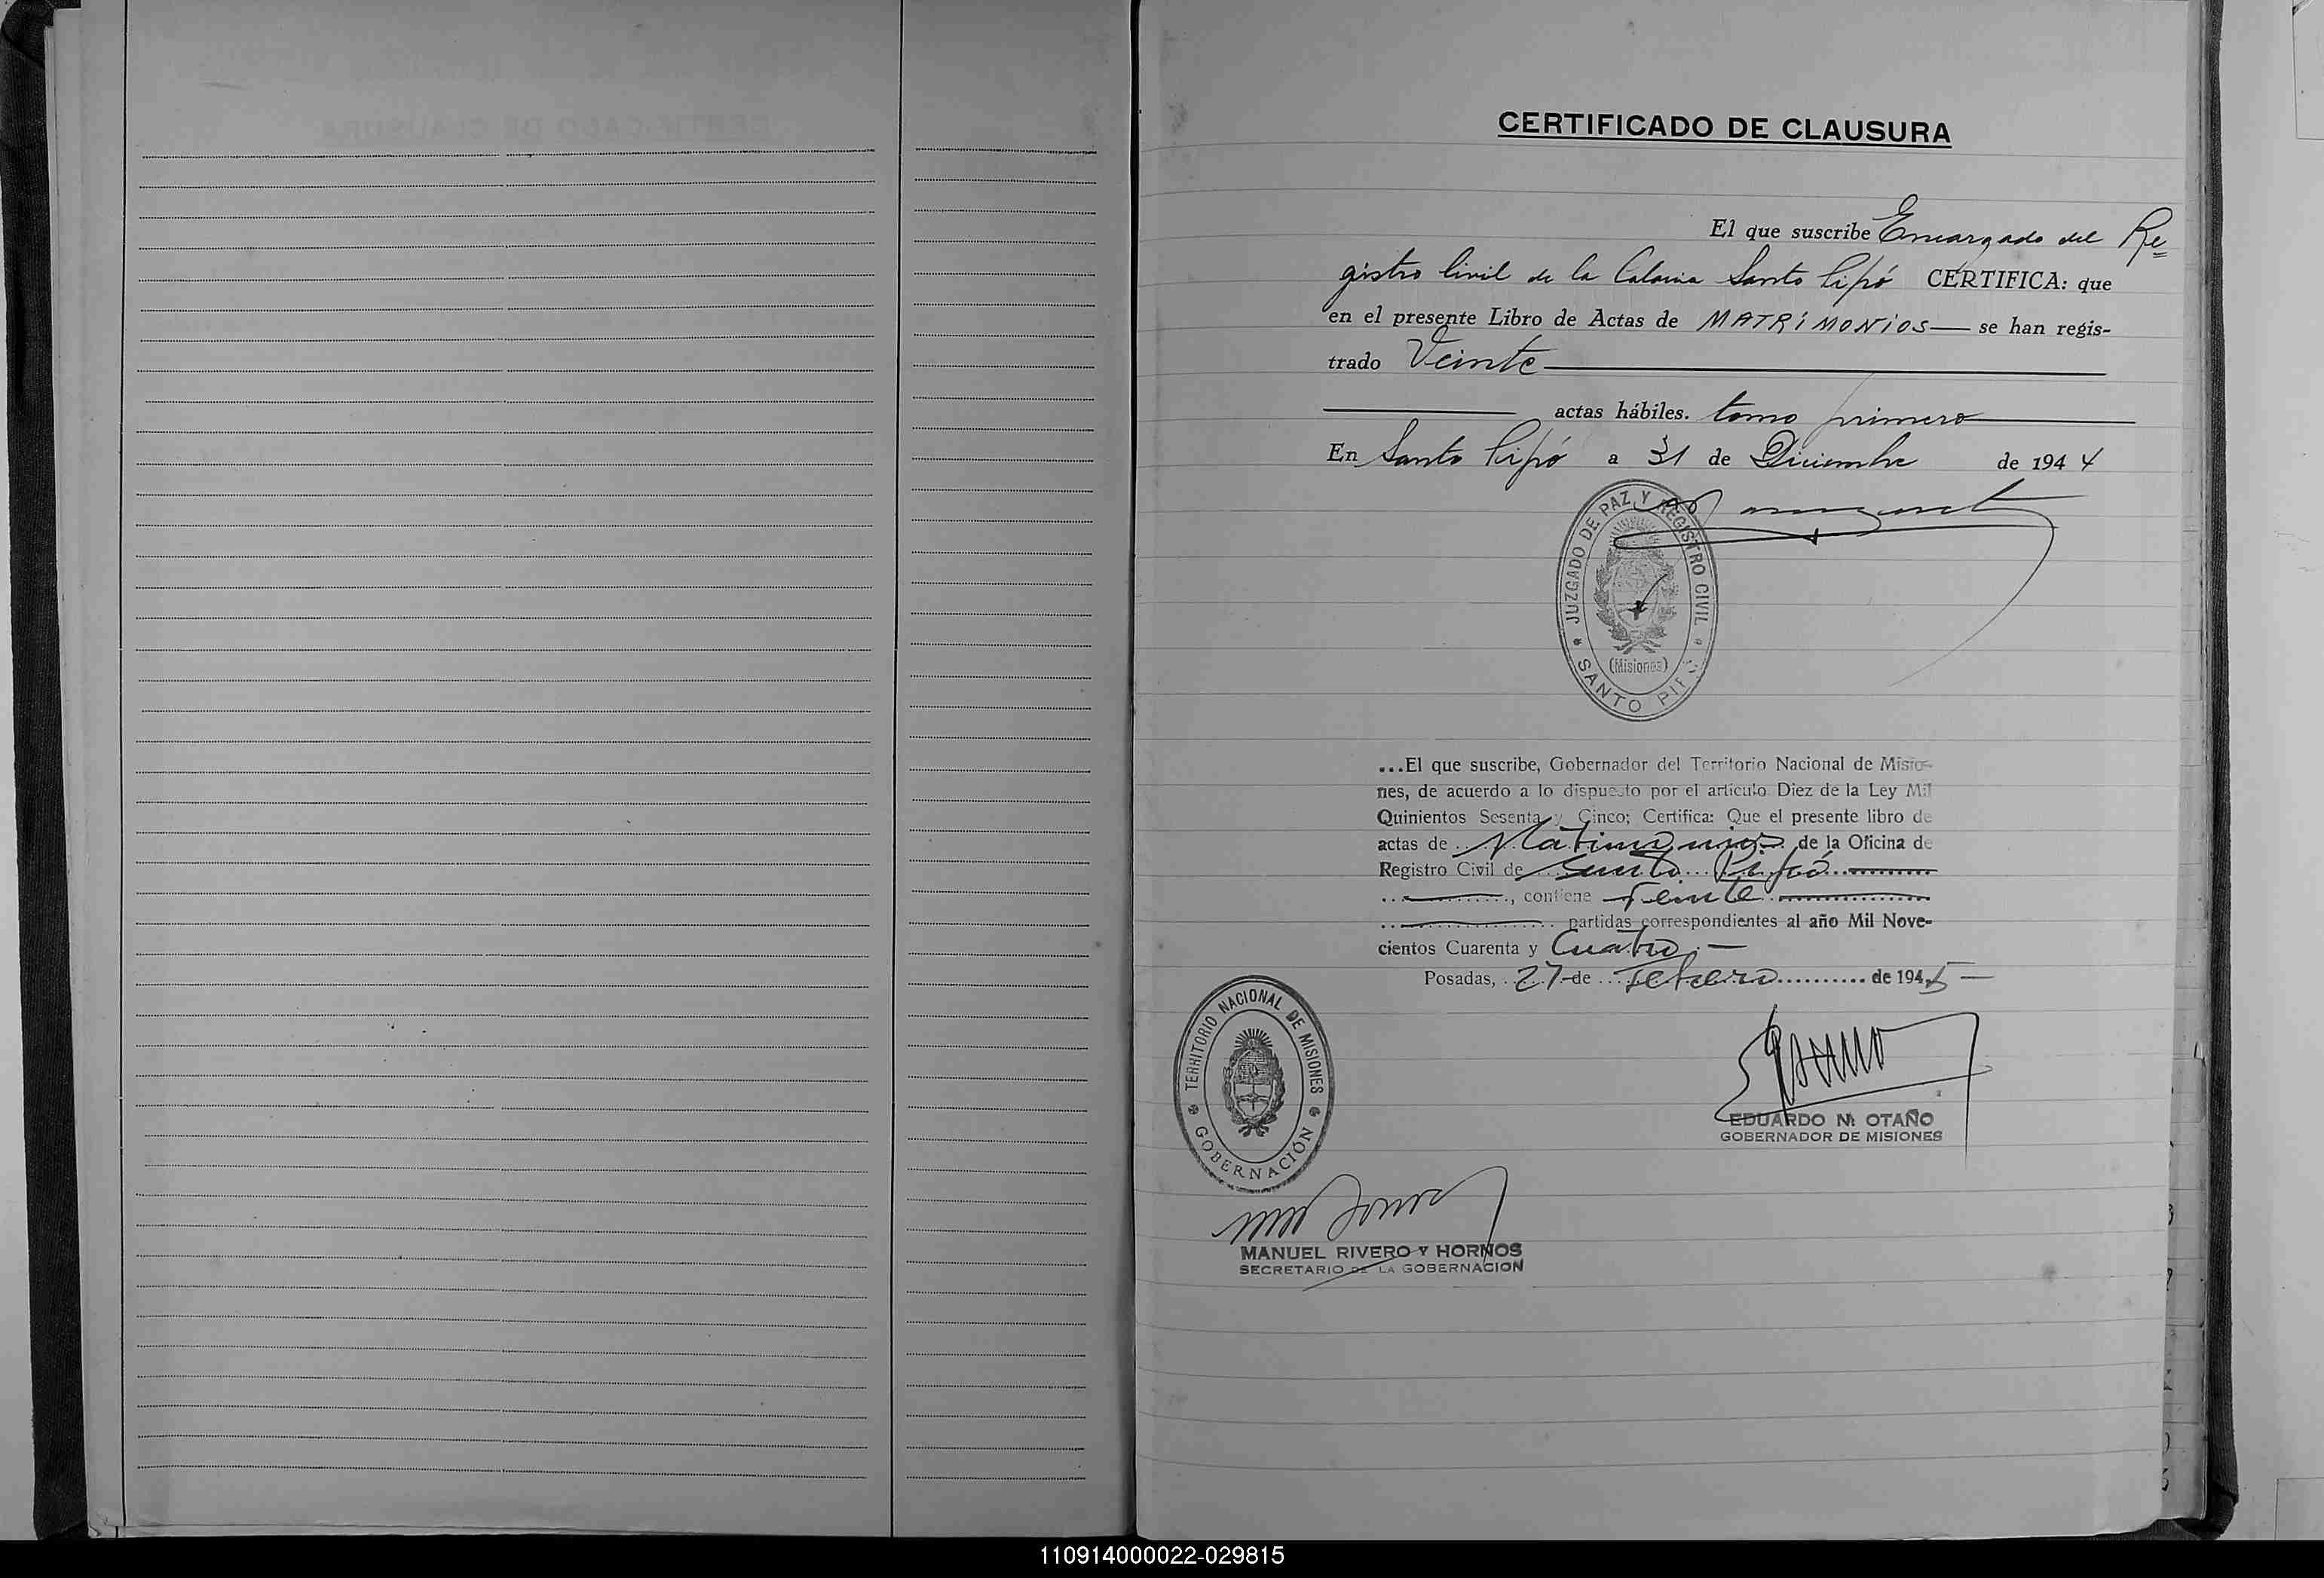 CERTIFICADO DE CLAUSURA
El que suscribe Encargado del Re=
gistro Civil de la Colonia Santo Pipó CERTIFICA: que
en el presente Libro de Actas de MATRiMONiOS— se han regis-
trado Veinte—
actas hábiles. tomo primero
En Santo Pipó a 31 de Diciembre de 1944
JUZGADO DE PAZ Y REGISTRO CIVIL
(Misiones)
SANTO PIPÓ
...El que suscribe, Gobernador del Territorio Nacional de Misio-
nes, de acuerdo a lo dispuesto por el artículo Diez de la Ley Mil
Quinientos Sesenta y Cinco; Certifica: Que el presente libro de
actas de Matrimonios de la Oficina de
Registro Civil de Santo Pipó
, contiene Veinte
partidas correspondientes al año Mil Nove-
cientos Cuarenta y Cuatro.—
Posadas, 27 de Febrero de 1945—
TERRITORIO NACIONAL DE MISIONES
GOBERNACIÓN
EDUARDO N. OTAÑO
GOBERNADOR DE MISIONES
MANUEL RIVERO Y HORNOS
SECRETARIO DE LA GOBERNACION
110914000022-029815